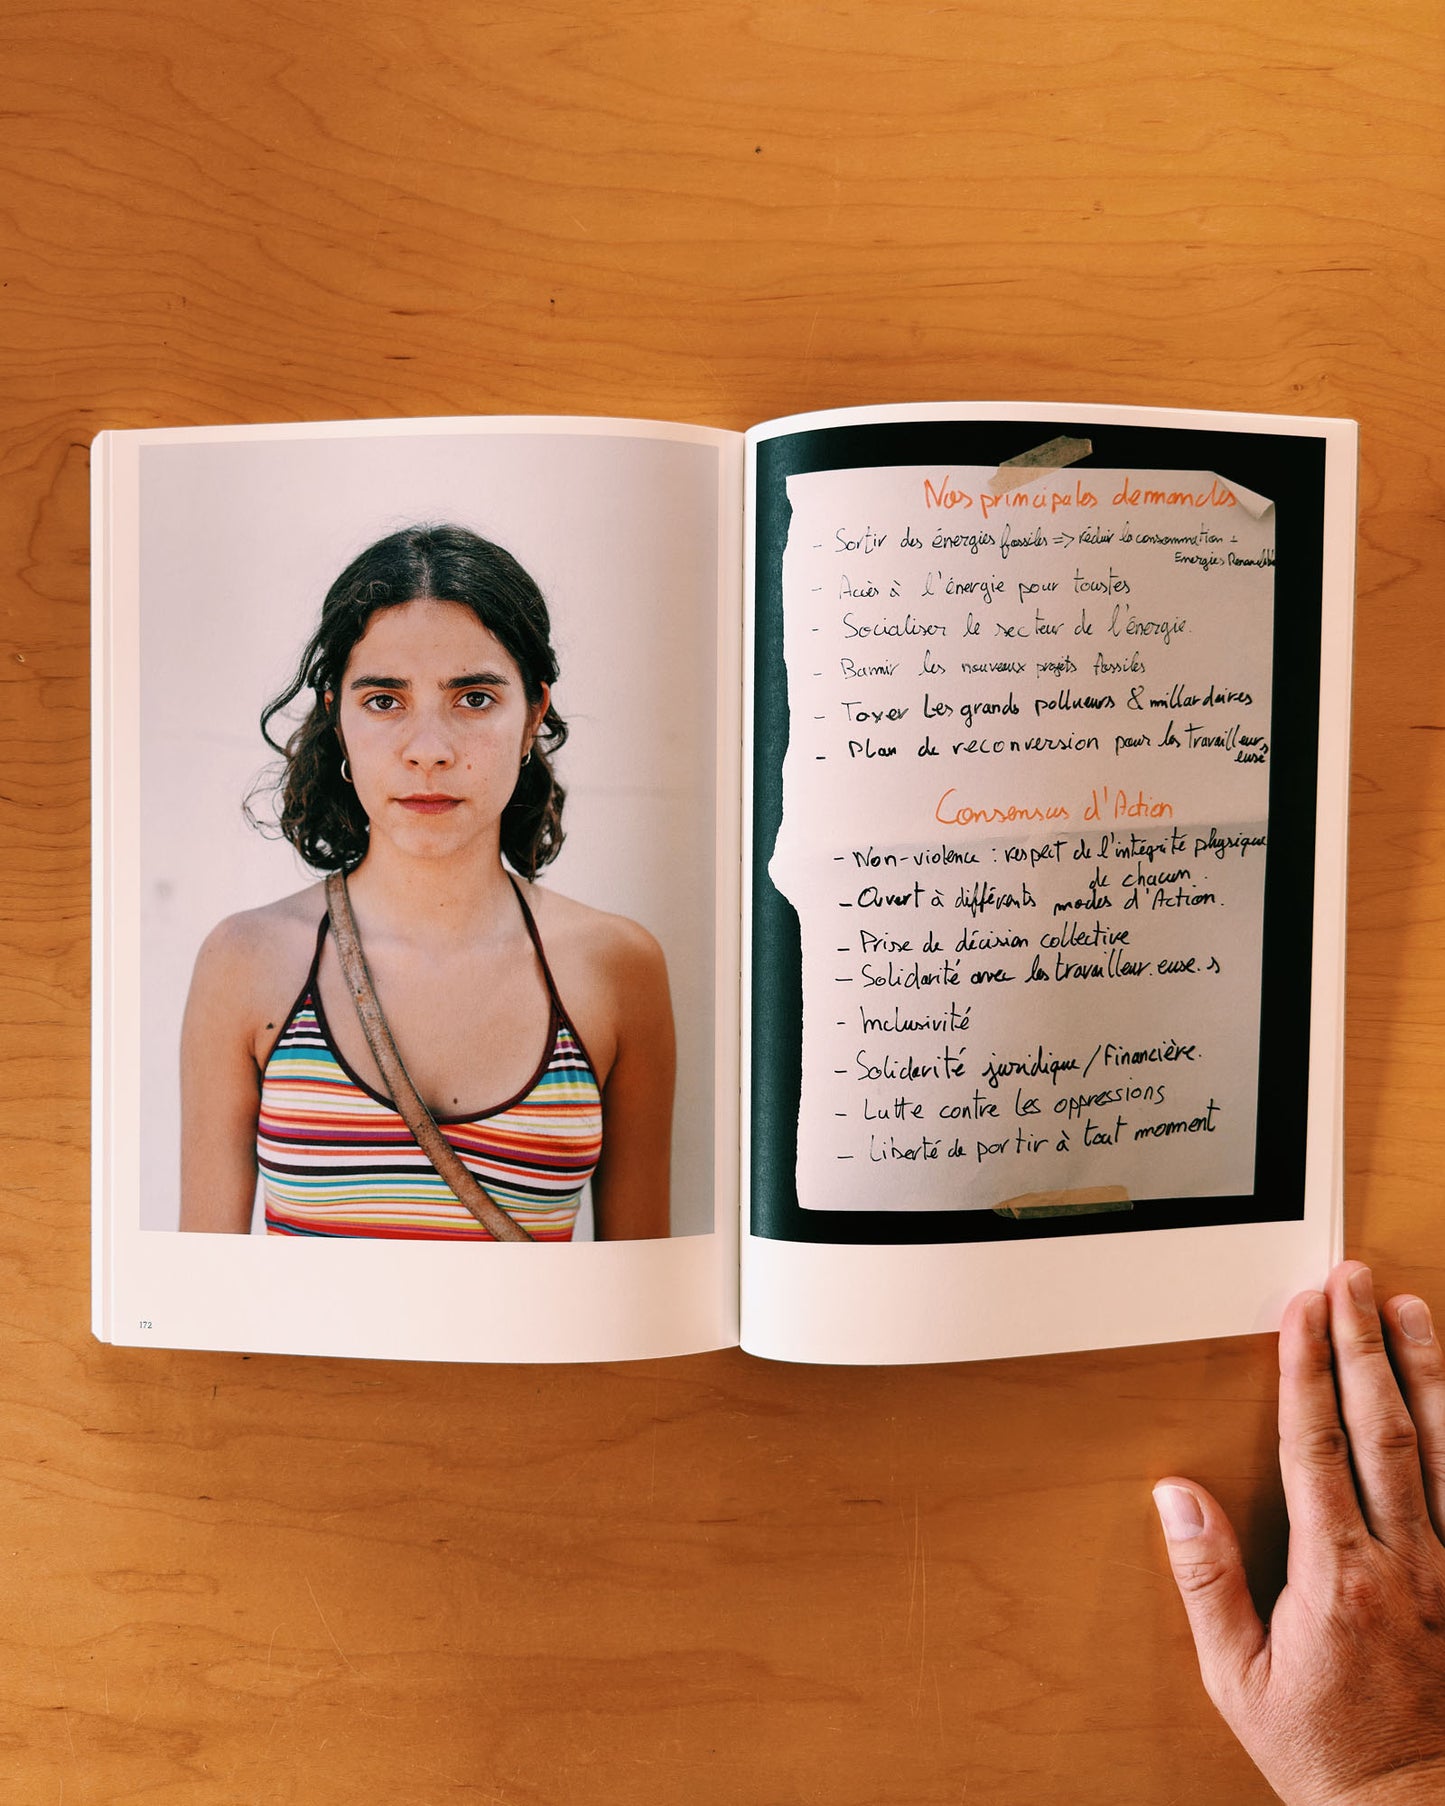 Nos principales demandes
- Sortir des énergies fossiles => réduir la consommation +
Energies Renouvelables
- Accès à l'énergie pour toustes
- Socialiser le secteur de l'énergie.
- Bannir les nouveaux projets fossiles
- Taxer Les grands pollueurs & millardaires
- Plan de reconversion pour les travailleurs
euse
Consensus d'Action
- Non-violence : respect de l'intégrité physique
de chacun.
- Ouvert à différents modes d'Action.
- Prise de décision collective
- Solidarité avec les travailleur.euse.s
- Inclusivité
- Solidarité juridique / Financière.
- Lutte contre les oppressions
- Liberté de partir à tout moment
172